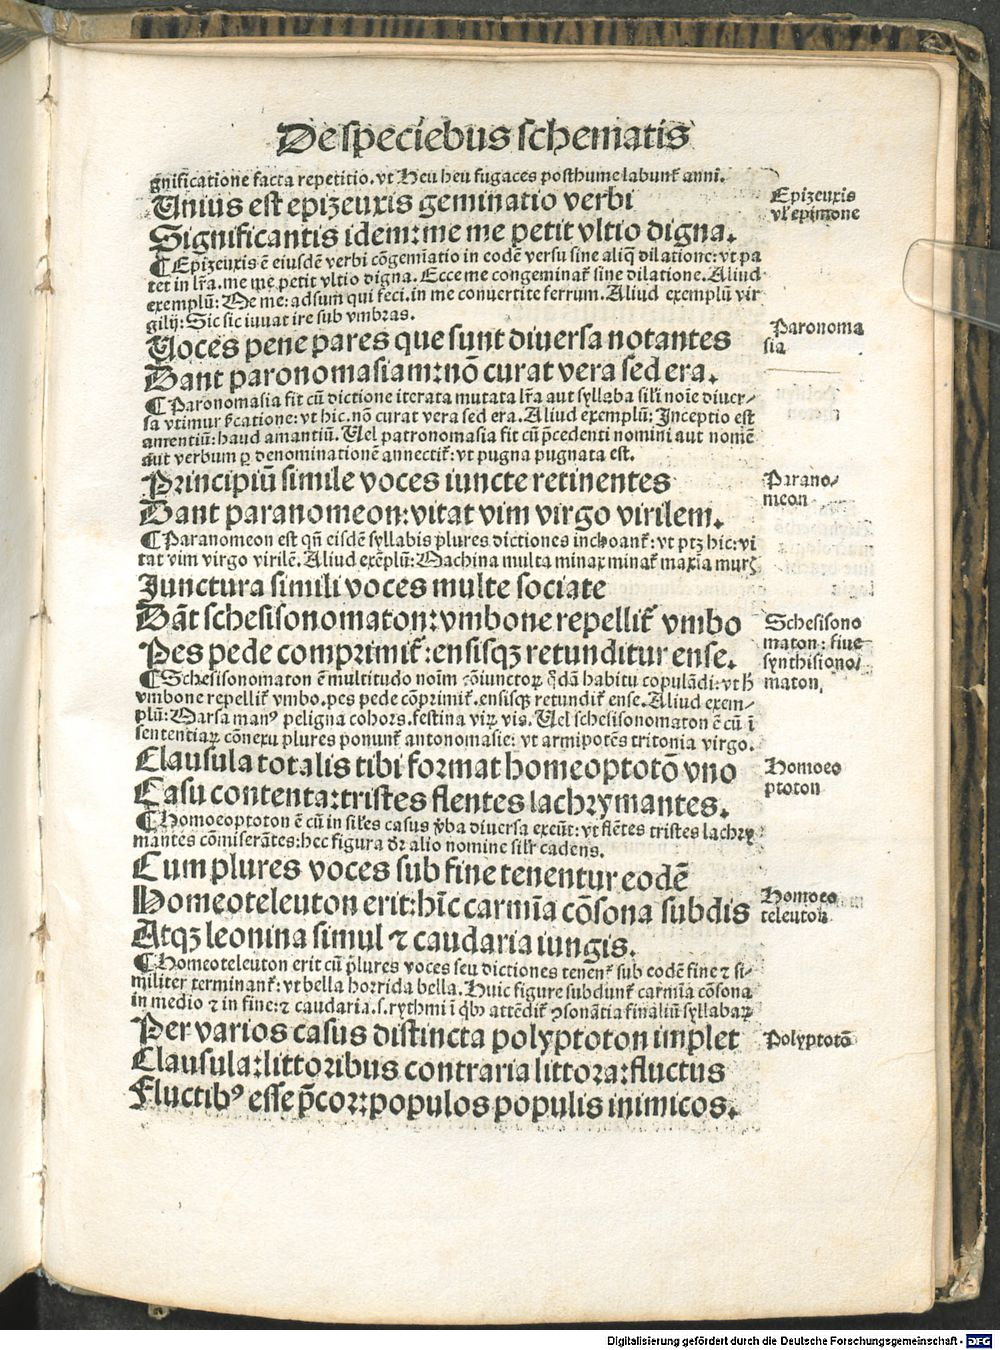 De speciebus schematis
gnificatione facta repetitio. vt Heu heu fugaces posthume labunt᷑ anni.
Unius est epizeuxis geminatio verbi
Significantis idem: me me petit vltio digna.
Epizeuxis
vl᷑ epimone
¶ Epizeuxis ē eiusdē verbi cōgemiatio in codē versu sine aliq̄ dilatione: vt pa
tet in lr̄a. me me petit vltio digna. Ecce me congeminat᷑ sine dilatione. Aliud
exemplū: Me me: adsum qui feci. in me conuertite ferrum. Aliud exemplū vir
gilij: Sic sic iuuat ire sub vmbras.
Uoces pene pares que sunt diuersa notantes
Dant paronomasiam: nō curat vera sed era.
Paronoma
sia
¶ Paronomasia fit cū dictione iterata mutata lr̄a aut syllaba sili noīe diuer-
sa vtimur r̄catione: vt hic. nō curat vera sed era. Aliud exemplū: Inceptio est
amentiū: haud amantiū. Uel patronomasia fit cū p̄cedenti nomini aut nomē
aut verbum ꝑ denominationē annectit᷑: vt pugna pugnata est.
Principiū simile voces iuncte retinentes
Dant paranomeon: vitat vim virgo virilem.
Parano-
meon
¶ Paranomeon est qn̄ eisdē syllabis plures dictiones inchoant᷑: vt ptꝫ hic: vi
tat vim virgo virilē. Aliud exēplū: Machina multa minax minat᷑ maxīa murꝭ
Junctura simili voces multe sociate
Dāt schesisonomaton: vmbone repellit᷑ vmbo
Pes pede comprimit᷑: ensisqꝫ retunditur ense.
Schesisono
maton: siue
synthisiono-
maton.
¶ Schesisonomaton ē multitudo noīm cōiunctoꝝ q̄dā habitu copulādi: vt h̄
vmbone repellit᷑ vmbo. pes pede cōprimit᷑. ensisqꝫ retundit᷑ ense. Aliud exem-
plū: Marsa manꝰ peligna cohors. festina viꝝ vis. Uel schesisonomaton ē cū ī
sententiaꝝ cōnexu plures ponunt᷑ antonomasie: vt armipotēs tritonia virgo.
Clausula totalis tibi format homeoptotō vno
Casu contenta: tristes flentes lachrymantes.
Homoeo
ptoton
¶ Homoeoptoton ē cū in siles casus v̄ba diuersa exeūt: vt flētes tristes lachry
mantes cōmiserātes: hec figura dr̄ alio nomine silr̄ cadens.
Cum plures voces sub fine tenentur eodē
Homeoteleuton erit: hīc carmīa cōsona subdis
Atqꝫ leonina simul ⁊ caudaria iungis.
Homoeo
teleuton
¶ Homoeoteleuton erit cū plures voces seu dictiones tenent᷑ sub eodē fine ⁊ si-
militer terminant᷑: vt bella horrida bella. Huic figure subdunt᷑ carmīa cōsona
in medio ⁊ in fine: ⁊ caudaria. s. rythmi ī qbꝰ attēdit᷑ ꝯsonātia finaliū syllabaꝝ
Per varios casus distincta polyptoton implet
Clausula: littoribus contraria littora: fluctus
Fluctibꝰ esse p̄cor: populos populis inimicos.
Polyptotō
Digitalisierung gefördert durch die Deutsche Forschungsgemeinschaft - DFG